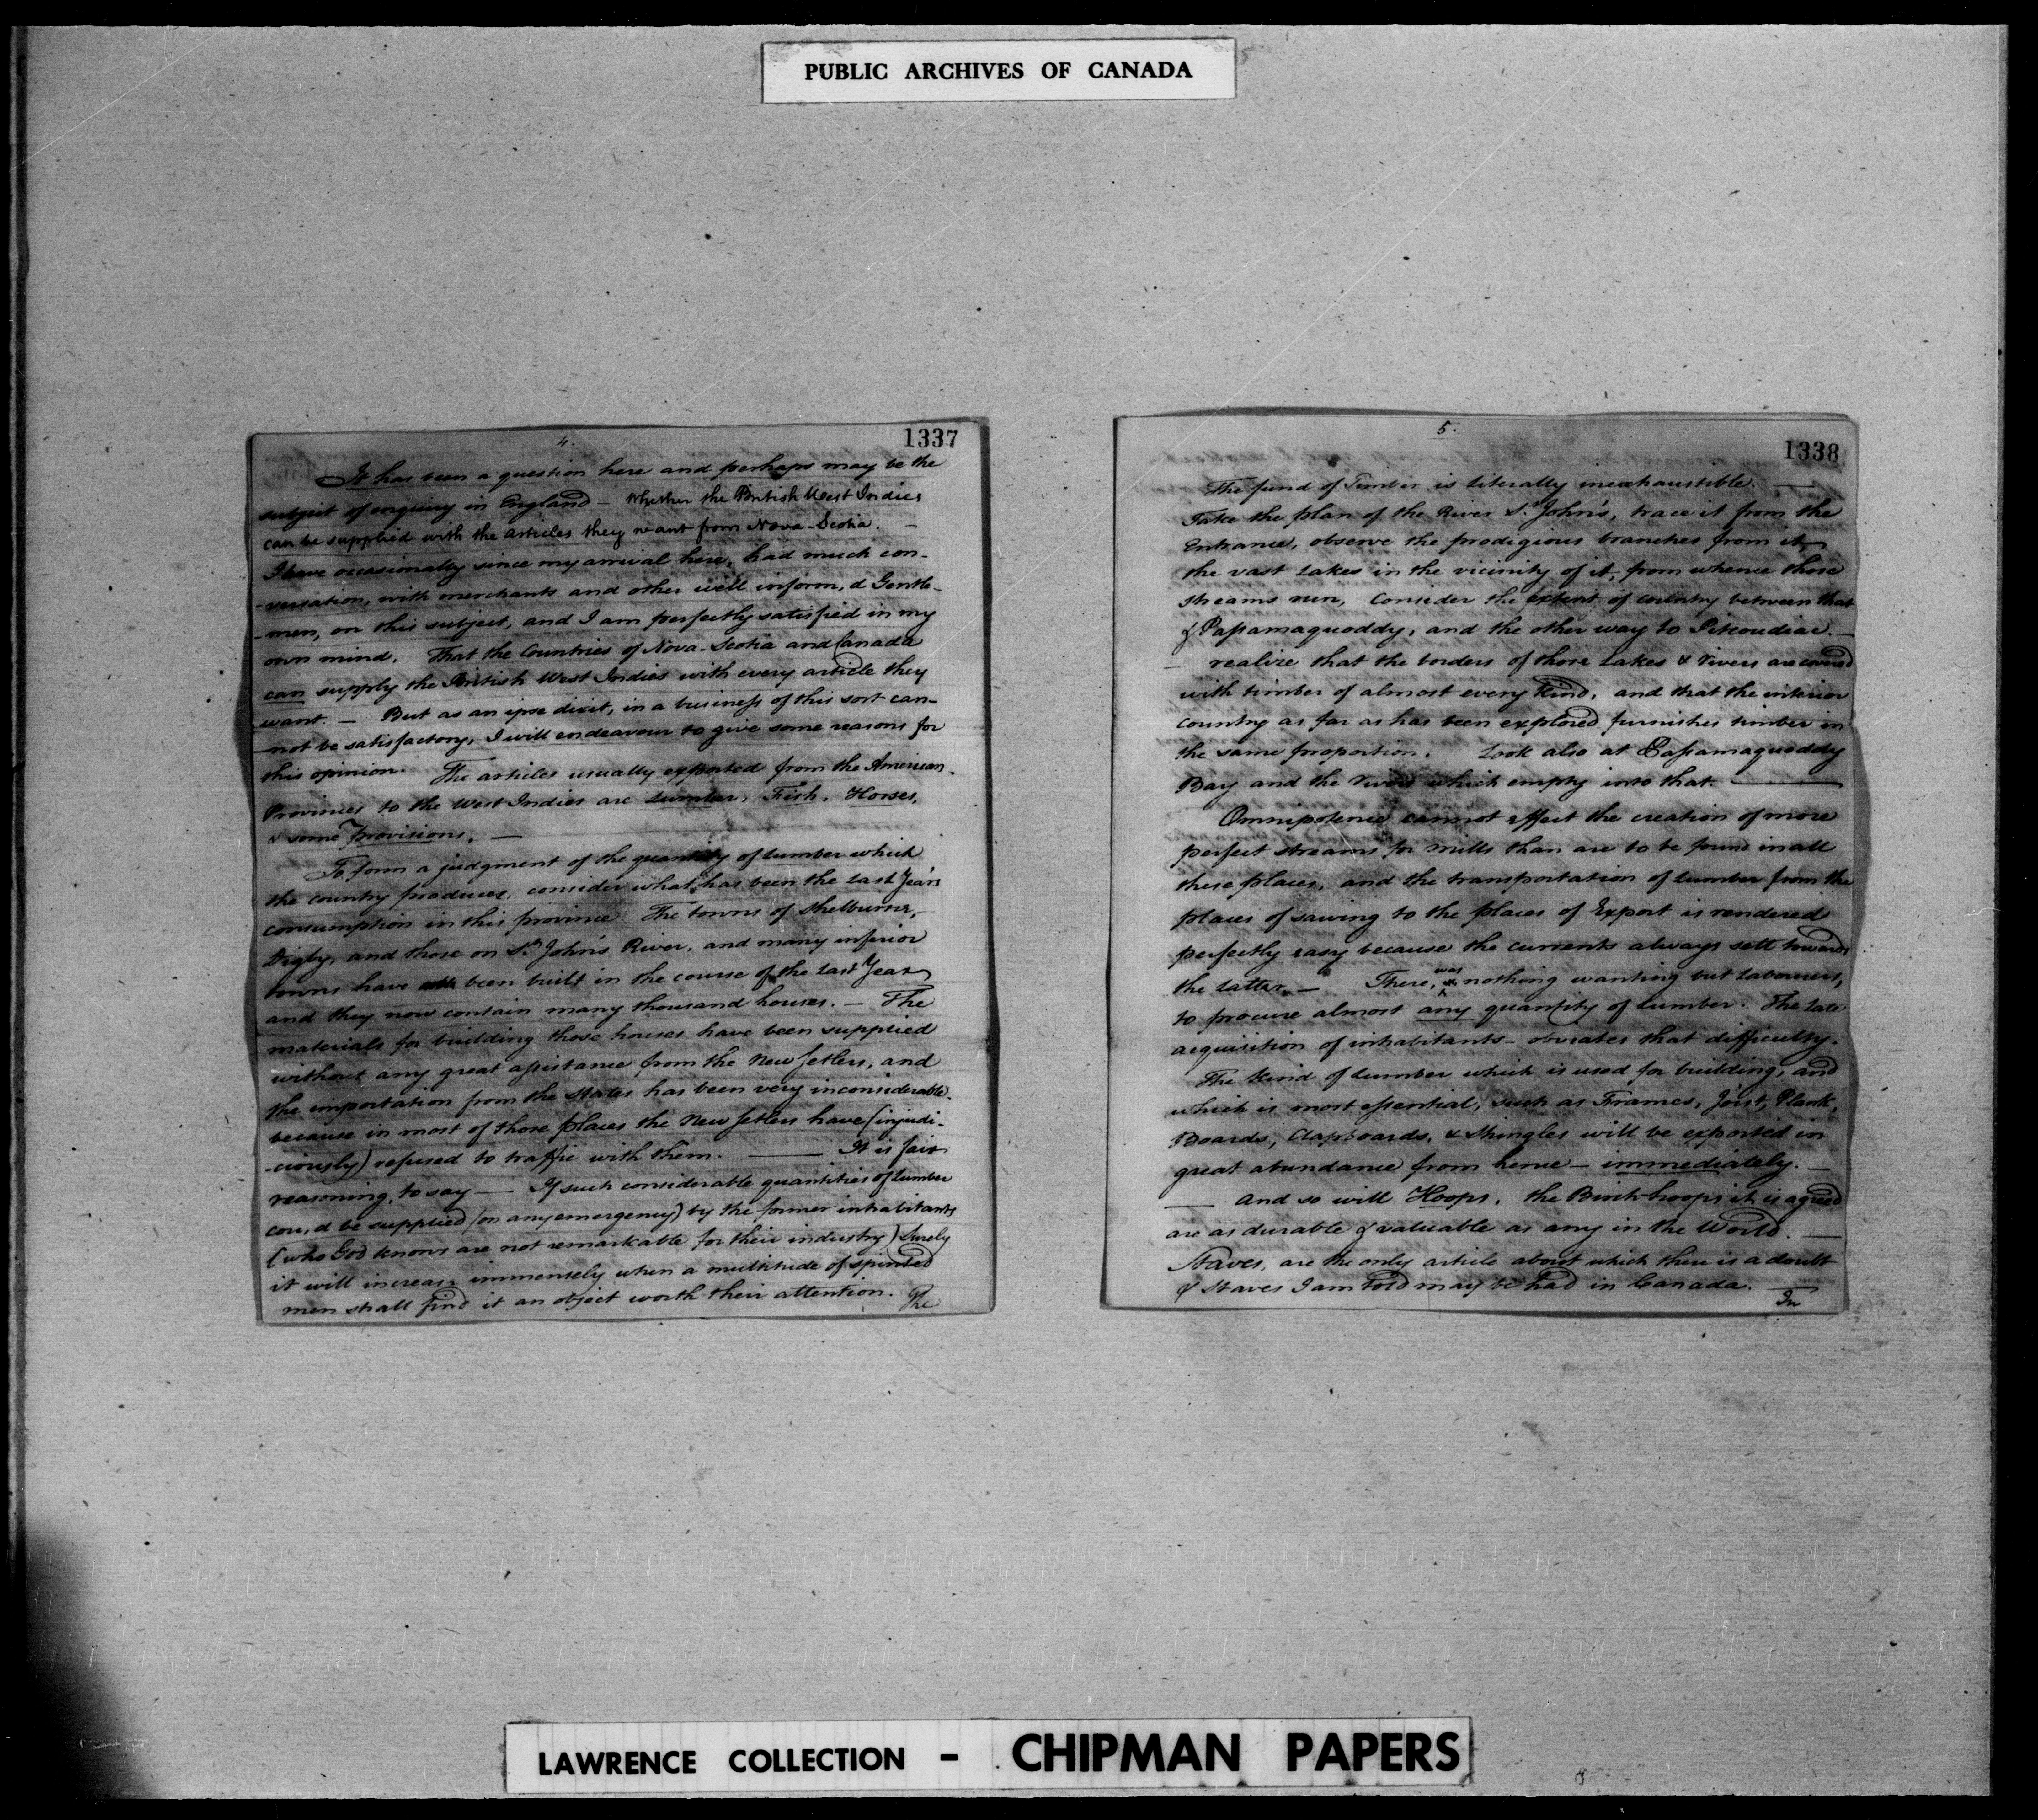 PUBLIC ARCHIVES OF CANADA
4.
1337
It has been a question here and perhaps may be the
subject of enquiry in England – Whether the British West Indies
can be supplied with the articles they want from Nova-Scotia. –
I have occasionally since my arrival here, had much con-
-versation, with merchants and other well inform,d Gentle-
-men, on this subject, and I am perfectly satisfied in my
own mind. That the Countries of Nova-Scotia and Canada
can supply the British West Indies with every article they
want. – But as an ipse dixit, in a business of this sort can-
-not be satisfactory, I will endeavour to give some reasons for
this opinion. The articles usually exported from the American
Provinces to the West Indies are Lumber, Fish, Horses,
& some provisions. –
To form a judgment of the quantity of Lumber which
the country produces, consider what has been the last Year's
consumption in this province. The towns of Shelburne,
Digby, and those on St. John's River, and many inferior
towns have been built in the course of the last Year
and they now contain many thousand houses. – The
materials for building those houses have been supplied
without any great assistance from the New Setlers, and
the importation from the States has been very inconsiderable.
because in most of those places the New Setlers have (injudi-
-ciously) refused to traffic with them. — It is fair
reasoning, to say — If such considerable quantities of Lumber
cou,d be supplied (on any emergency) by the former inhabitants
(who God knows are not remarkable for their industry) Surely
it will increase immensely when a multitude of spirited
men shall find it an object worth their attention. The
5.
1338
The fund of Timber is literally inexhaustible. —
Take the plan of the River St. John's, trace it from the
Entrance, observe the prodigious branches from it,
the vast Lakes in the vicinity of it, from whence those
streams run, Consider the extent of country between that
& Passamaquoddy, and the other way to Petcoudiac. –
– realize that the borders of those Lakes & Rivers are covered
with timber of almost every kind, and that the interior
country as far as has been explored furnishes timber in
the same proportion. Look also at Passamaquoddy
Bay and the Rivers which empty into that. —
Omnipotence cannot effect the creation of more
perfect streams for mills than are to be found in all
these places, and the transportation of Lumber from the
places of sawing to the places of Export is rendered
perfectly easy because the currents always sett towards
the latter. – There, was nothing wanting but Labourers,
to procure almost any quantity of Lumber. The late
acquisition of inhabitants – obviates that difficulty.
The kind of Lumber which is used for building, and
which is most essential, such as Frames, Joist, Plank,
Boards, Clapboards, & Shingles will be exported in
great abundance from hence – immediately. –
— and so will Hoops, the Birch hoops it is agreed
are as durable & valuable as any in the World. —
Staves, are the only article about which there is a doubt
& Staves I am told may be had in Canada. —
In
LAWRENCE COLLECTION - CHIPMAN PAPERS